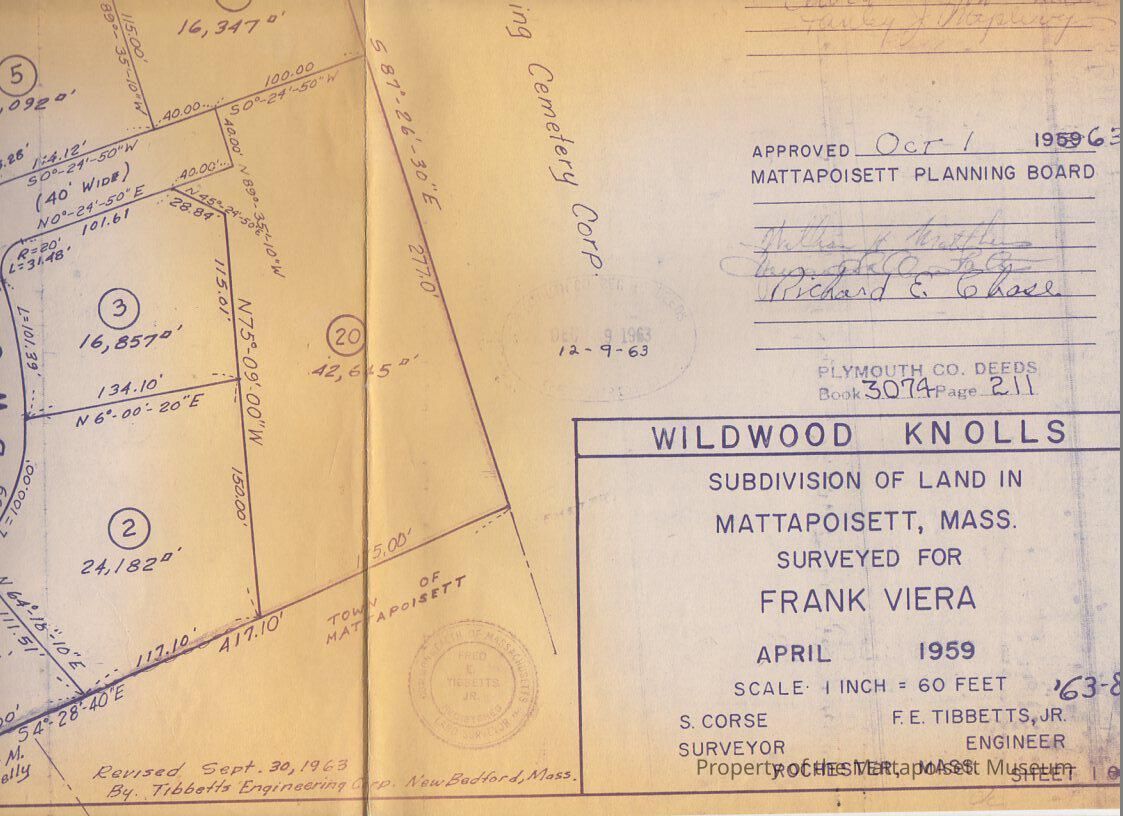 16,347□'
5
,092□'
115.00'
89°-35'-10"W
40.00
100.00
S0°-24'-50"W
S 87°-26'-30"E
277.0'
ing Cemetery Corp.
S0°-24'-50"W
(40' WIDE)
N0°-24'-50"E
101.61
40.00'
40.00'
N 89°-35'-10"W
28.84'
R=20'
L=31.48'
L=101.39'
3
16,857□'
115.01'
N75°-09'.00"W
20
134.10'
N 6°-00'-20"E
150.00'
L=100.00'
2
24,182□'
N 64°-18'-10"E
111.51'
117.10'
417.10'
TOWN OF
MATTAPOISETT
COMMONWEALTH OF MASSACHUSETTS
FRED
E.
TIBBETTS
JR.
54°-28'-40"E
M.
elly
Revised Sept. 30, 1963
By. Tibbetts Engineering Corp. New Bedford, Mass.
APPROVED Oct 1 1959 63
MATTAPOISETT PLANNING BOARD
Richard E. Chase
DEC 9 1963
12-9-63
PLYMOUTH CO. DEEDS
Book 3074 Page 211
WILDWOOD KNOLLS
SUBDIVISION OF LAND IN
MATTAPOISETT, MASS.
SURVEYED FOR
FRANK VIERA
APRIL 1959
SCALE· 1 INCH = 60 FEET
'63-8
S. CORSE F.E. TIBBETTS, JR.
SURVEYOR ENGINEER
ROCHESTER, MASS. SHEET 1
Property of the Mattapoisett Museum